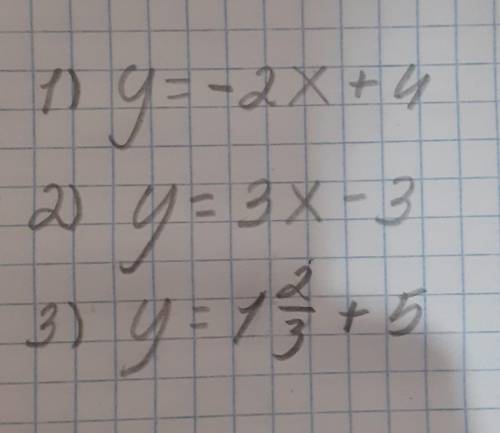 1) y = -2x + 4
2) y = 3x - 3
3) y = 1 2/3 + 5